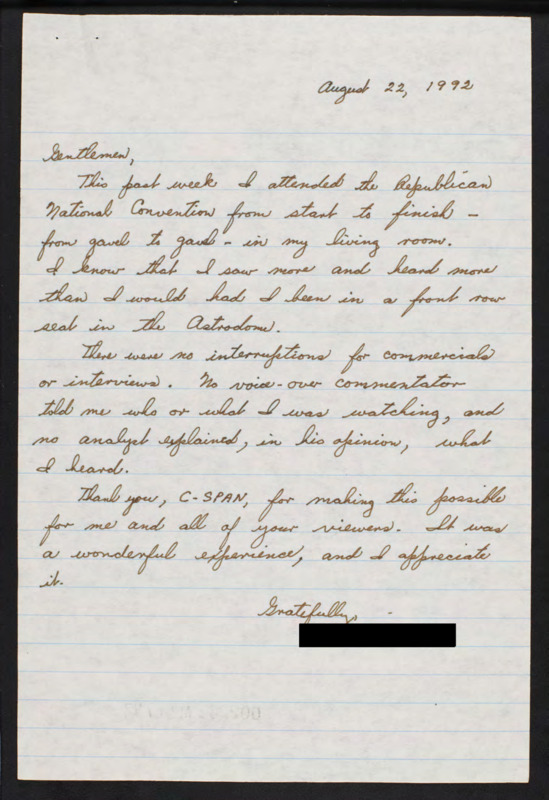 August 22, 1992
Gentlemen,
This past week I attended the Republican
National Convention from start to finish -
from gavel to gavel - in my living room.
I know that I saw more and heard more
than I would had I been in a front row
seat in the Astrodome.
There were no interruptions for commercials
or interviews. No voice-over commentator
told me who or what I was watching, and
no analyst explained, in his opinion, what
I heard.
Thank you, C-SPAN, for making this possible
for me and all of your viewers. It was
a wonderful experience, and I appreciate
it.
Gratefully,